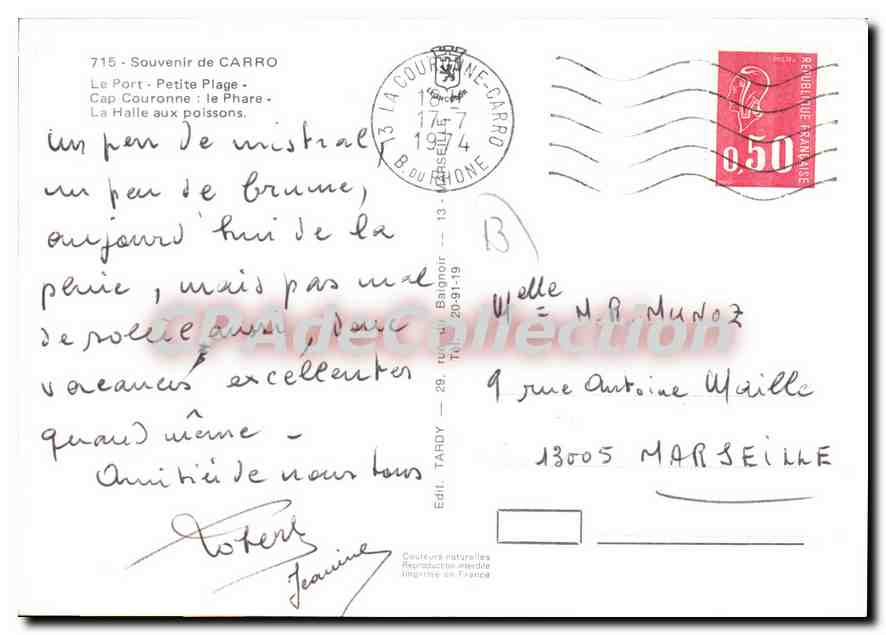 715 - Souvenir de CARRO
Le Port - Petite Plage -
Cap Couronne : le Phare -
La Halle aux poissons.
un peu de mistral,
un peu de brume,
aujourd'hui de la
pluie, mais pas mal
de soleil aussi, donc
vacances excellentes
quand même -
Amitiés de nous tous
Robert
Jeanine
13 LA COURONNE-CARRO
18 H
17-7
1974
B. DU RHONE
RÉPUBLIQUE FRANÇAISE
0,50
B
Edit. TARDY — 29, rue du Baignoir — 13 - MARSEILLE
Tél. 20-91-19
Melle M.R. MUNOZ
9 rue Antoine Maille
13005 MARSEILLE
Couleurs naturelles
Reproduction interdite
Imprimé en France
CPAdeCollection